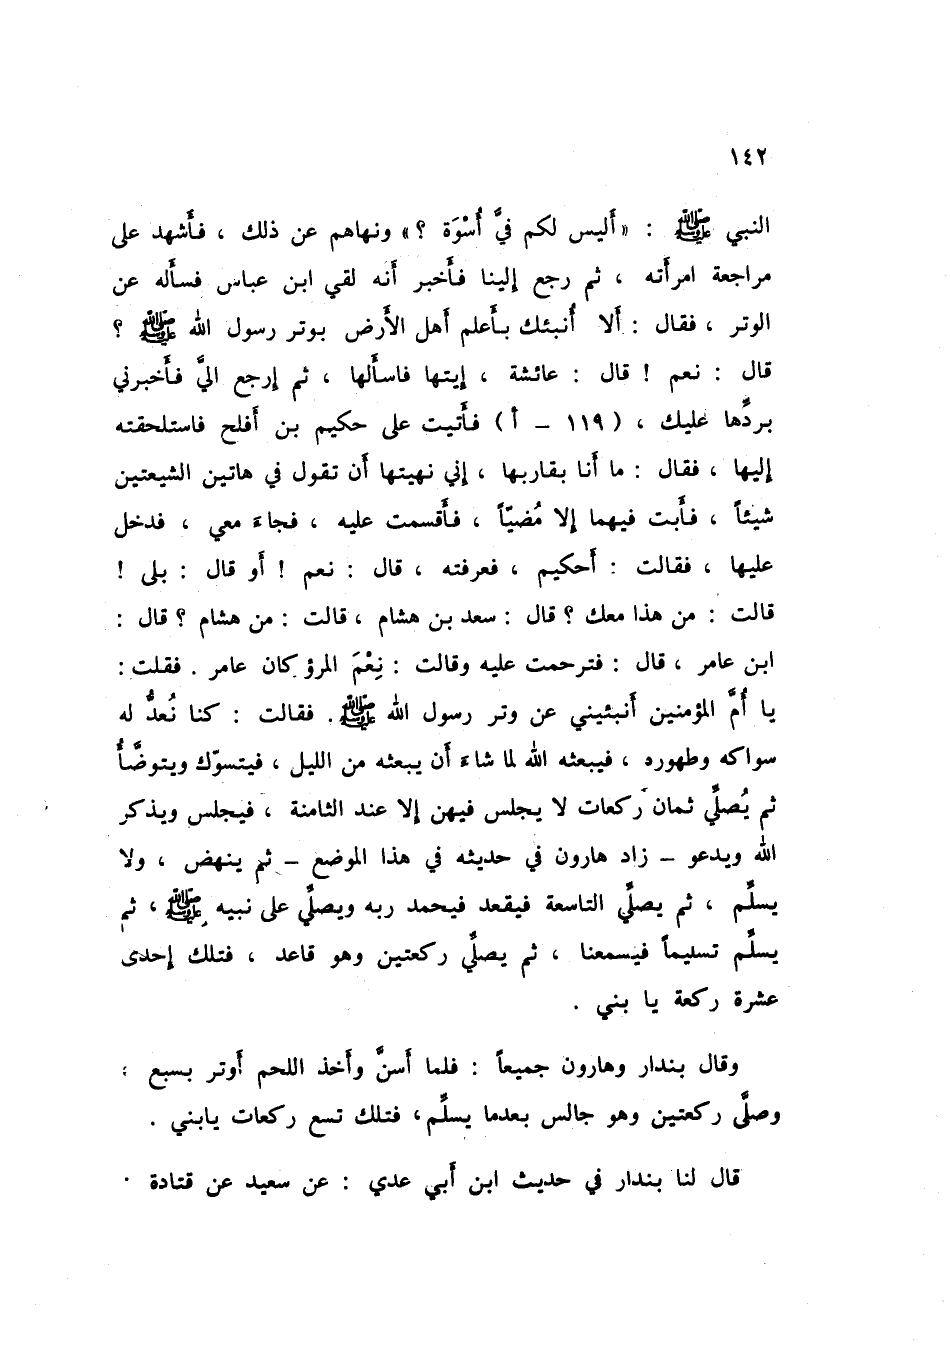 ١٤٢
النبي ﷺ : «أَليس لكم فيَّ أُسْوَة ؟» ونهاهم عن ذلك ، فأَشهد على
مراجعة امرأَته ، ثم رجع إلينا فأَخبر أَنه لقي ابن عباس فسأَله عن
الوتر ، فقال : أَلا أُنبئك بأَعلم أهل الأَرض بوتر رسول الله ﷺ ؟
قال : نعم ! قال : عائشة ، إيتها فاسأَلها ، ثم إرجع اليَّ فأَخبرني
بردِّها عليك ، (١١٩ – أ) فأَتيت على حكيم بن أَفلح فاستلحقته
إليها ، فقال : ما أَنا بقاربها ، إني نهيتها أَن تقول في هاتين الشيعتين
شيئاً ، فأَبت فيهما إلا مُضيّاً ، فأَقسمت عليه ، فجاءَ معي ، فدخل
عليها ، فقالت : أَحكيم ، فعرفته ، قال : نعم ! أَو قال : بلى !
قالت : من هذا معك ؟ قال : سعد بن هشام ، قالت : من هشام ؟ قال :
ابن عامر ، قال : فترحمت عليه وقالت : نِعْمَ المرؤ كان عامر . فقلت :
يا أُمَّ المؤمنين أَنبئيني عن وتر رسول الله ﷺ . فقالت : كنا نُعدُّ له
سواكه وطهوره ، فيبعثه الله لما شاءَ أَن يبعثه من الليل ، فيتسوّك ويتوضَّأُ
ثم يُصلِّي ثمان ركعات لا يجلس فيهن إلا عند الثامنة ، فيجلس ويذكر
الله ويدعو – زاد هارون في حديثه في هذا الموضع – ثم ينهض ، ولا
يسلِّم ، ثم يصلِّي التاسعة فيقعد فيحمد ربه ويصلِّي على نبيه ﷺ ، ثم
يسلِّم تسليماً فيسمعنا ، ثم يصلِّي ركعتين وهو قاعد ، فتلك إحدى
عشرة ركعة يا بني .
وقال بندار وهارون جميعاً : فلما أَسنَّ وأَخذ اللحم أَوتر بسبع ؛
وصلَّى ركعتين وهو جالس بعدما يسلِّم، فتلك تسع ركعات يابني .
قال لنا بندار في حديث ابن أَبي عدي : عن سعيد عن قتادة .